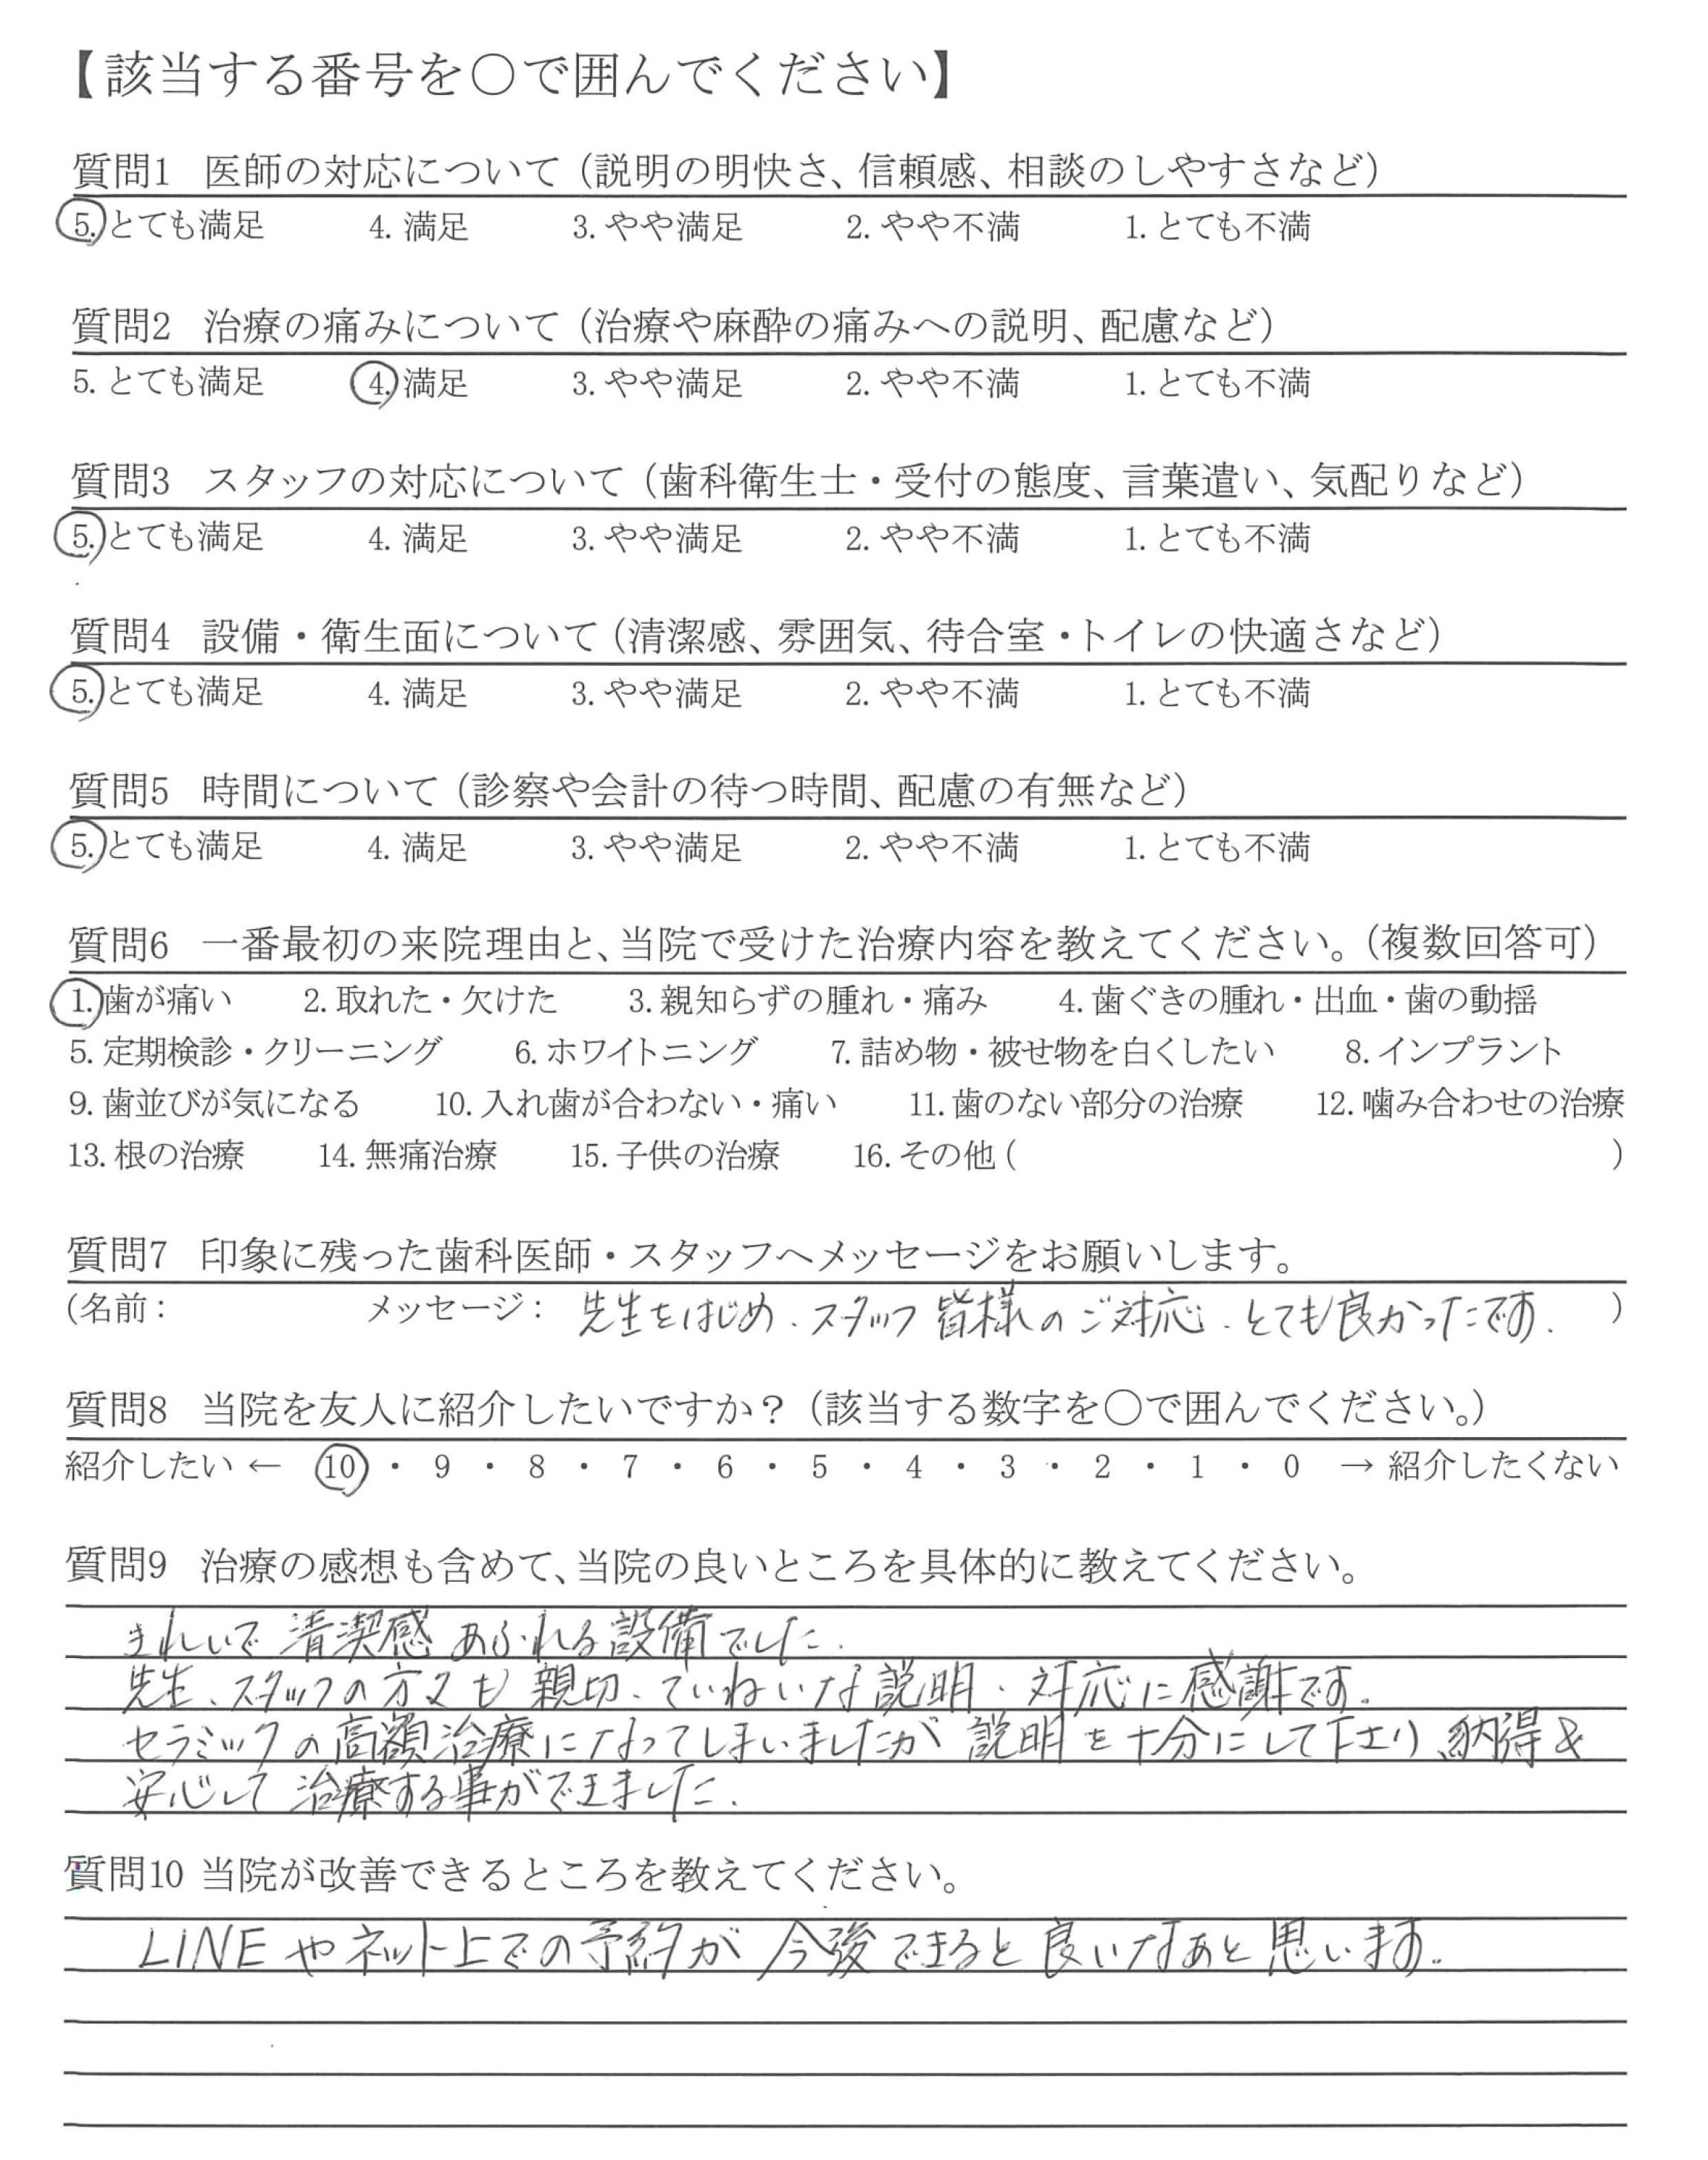 【該当する番号を○で囲んでください】
質問1 医師の対応について（説明の明快さ、信頼感、相談のしやすさなど）
5. とても満足 4. 満足 3. やや満足 2. やや不満 1. とても不満
質問2 治療の痛みについて（治療や麻酔の痛みへの説明、配慮など）
5. とても満足 4. 満足 3. やや満足 2. やや不満 1. とても不満
質問3 スタッフの対応について（歯科衛生士・受付の態度、言葉遣い、気配りなど）
5. とても満足 4. 満足 3. やや満足 2. やや不満 1. とても不満
質問4 設備・衛生面について（清潔感、雰囲気、待合室・トイレの快適さなど）
5. とても満足 4. 満足 3. やや満足 2. やや不満 1. とても不満
質問5 時間について（診察や会計の待つ時間、配慮の有無など）
5. とても満足 4. 満足 3. やや満足 2. やや不満 1. とても不満
質問6 一番最初の来院理由と、当院で受けた治療内容を教えてください。（複数回答可）
1. 歯が痛い 2. 取れた・欠けた 3. 親知らずの腫れ・痛み 4. 歯ぐきの腫れ・出血・歯の動揺
5. 定期検診・クリーニング 6. ホワイトニング 7. 詰め物・被せ物を白くしたい 8. インプラント
9. 歯並びが気になる 10. 入れ歯が合わない・痛い 11. 歯のない部分の治療 12. 噛み合わせの治療
13. 根の治療 14. 無痛治療 15. 子供の治療 16. その他（ ）
質問7 印象に残った歯科医師・スタッフへメッセージをお願いします。
（名前： メッセージ： 先生をはじめ、スタッフ皆様のご対応、とても良かったです. ）
質問8 当院を友人に紹介したいですか？（該当する数字を○で囲んでください。）
紹介したい ← 10 ・ 9 ・ 8 ・ 7 ・ 6 ・ 5 ・ 4 ・ 3 ・ 2 ・ 1 ・ 0 → 紹介したくない
質問9 治療の感想も含めて、当院の良いところを具体的に教えてください。
きれいで清潔感あふれる設備でした.
先生、スタッフの方々も親切、ていねいな説明、対応に感謝です。
セラミックの高額治療になってしまいましたが説明を十分にして下さり、納得&
安心して治療する事ができました.
質問10 当院が改善できるところを教えてください。
LINEやネット上での予約が今後できると良いなぁと思います。